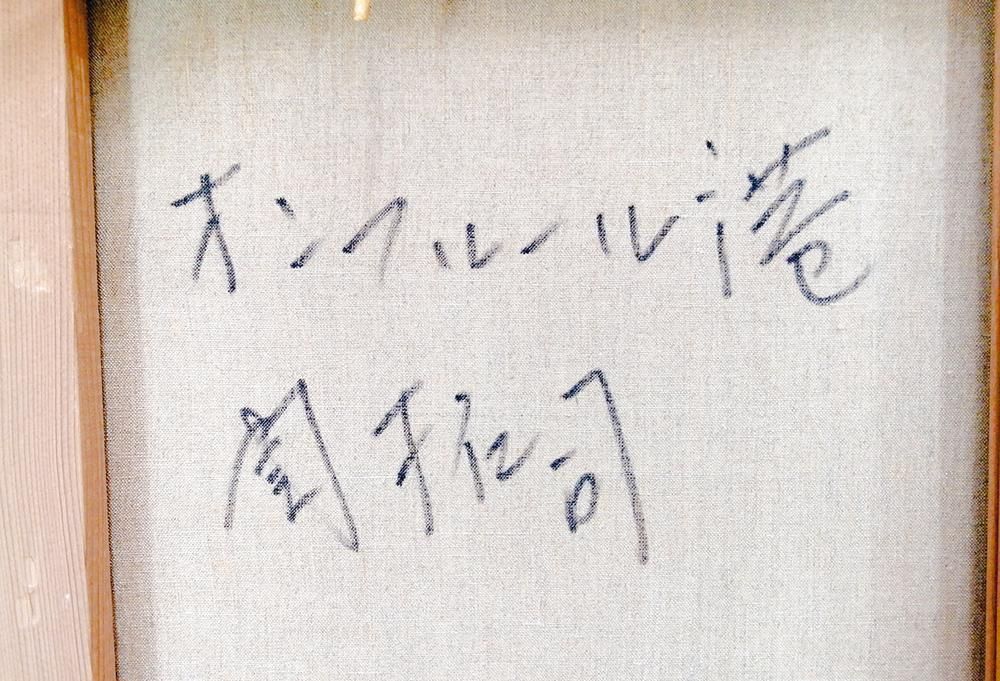 オンフルール港
雅司